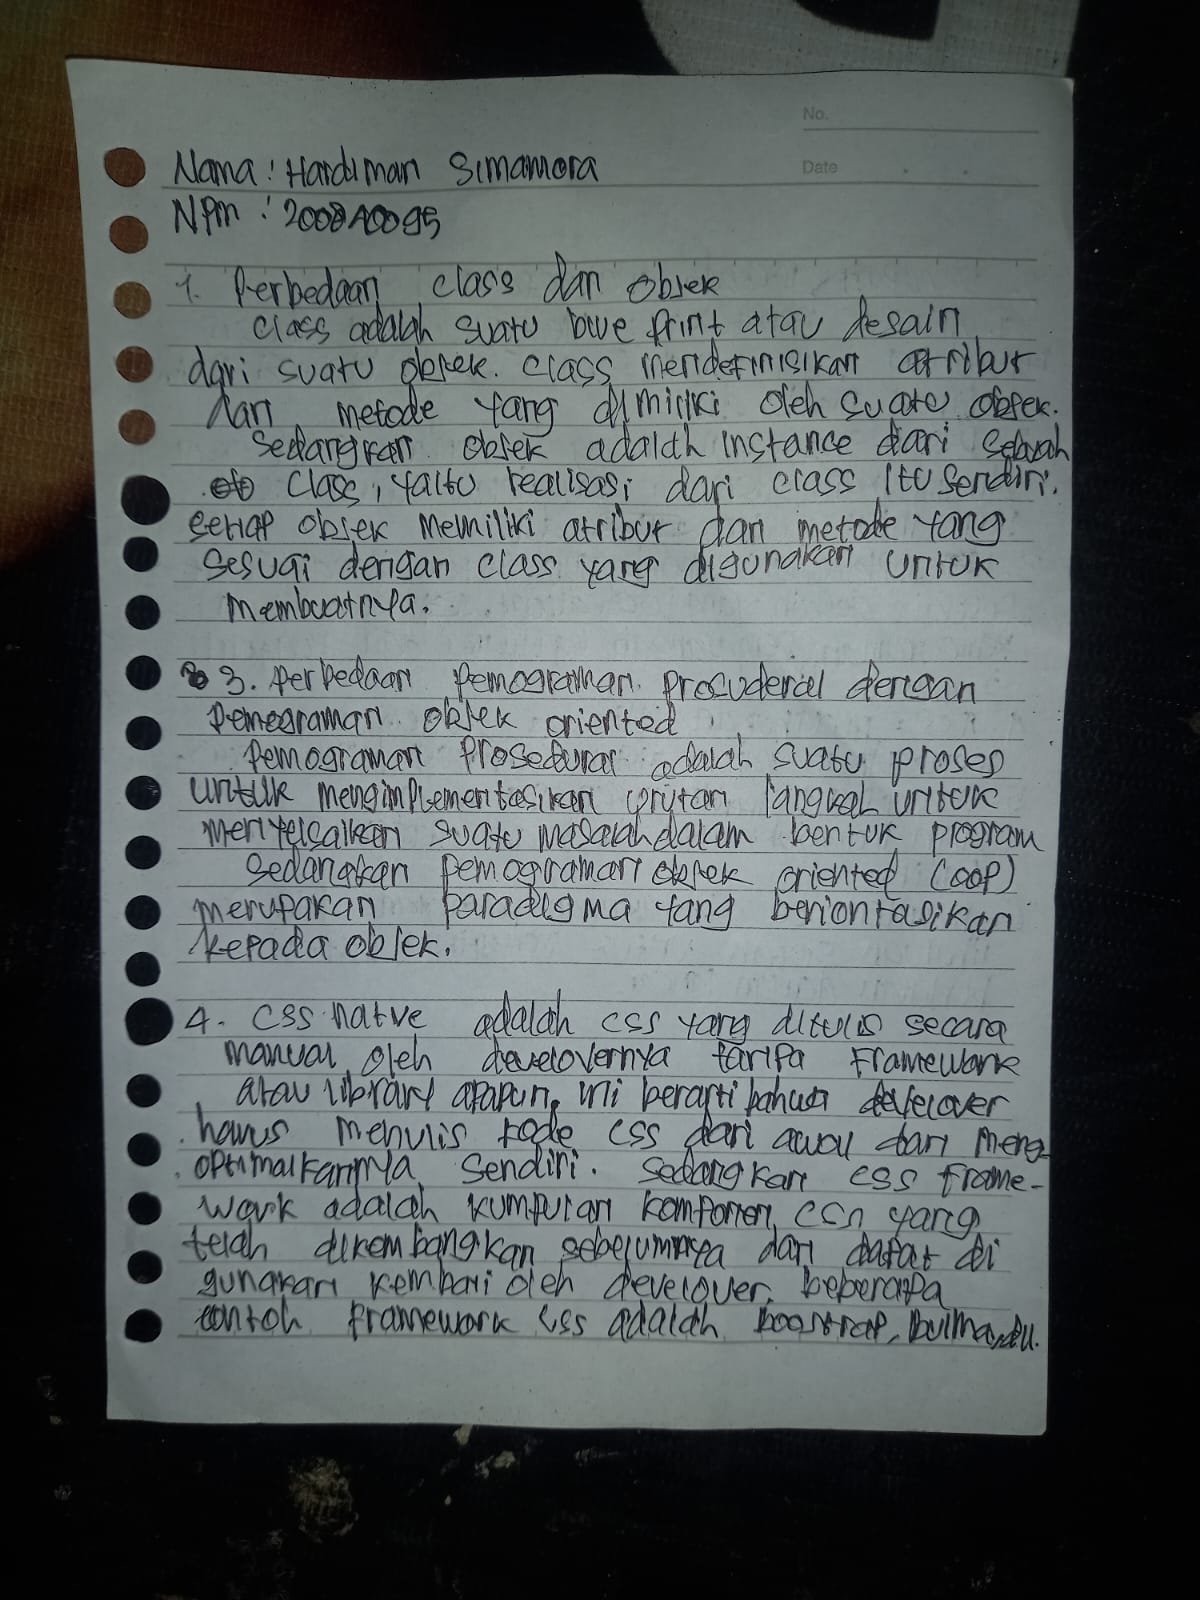 No.
Date
Nama : Hardiman Simamora
NPM : 2008A0095
1. Perbedaan class dan objek
class adalah suatu blue print atau desain
dari suatu objek. class mendefinisikan atribut
dan metode yang dimiliki oleh suatu objek.
sedangkan objek adalah instance dari sebuah
class, yaitu realisasi dari class itu sendiri.
setiap objek memiliki atribut dan metode yang
sesuai dengan class yang digunakan untuk
membuatnya.
3. Perbedaan Pemograman Prosuderal dengan
Pemograman objek oriented
Pemograman Prosedural adalah suatu proses
untuk mengimplementasikan urutan langkah untuk
menyelsaikan suatu masalah dalam bentuk program
sedangkan pemograman objek oriented (OOP)
merupakan paradigma yang beriontasikan
kepada objek.
4. CSS native adalah css yang ditulis secara
manual oleh develovernya tanpa Framework
atau library apapun, ini berarti bahwa develover
harus menulis kode css dari awal dan meng-
optimalkannya sendiri. sedangkan css frame-
work adalah kumpulan komponen css yang
telah dikembangkan sebelumnya dan dapat di
gunakan kembali oleh develover. beberapa
contoh framework css adalah boostrap, bulma, dll.